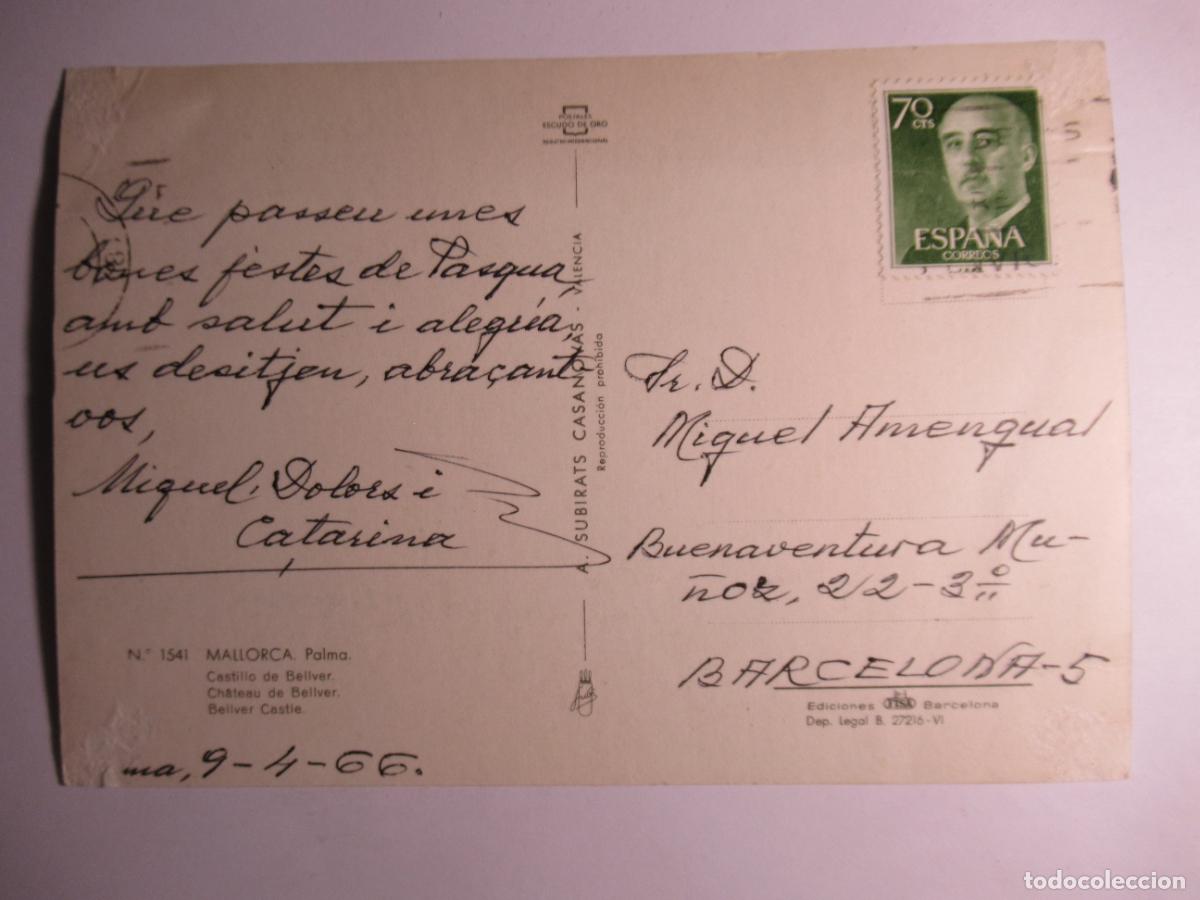 Que passeu unes
bones festes de Pasqua,
amb salut i alegria,
us desitjen, abraçant-
vos,
Miquel, Dolors i
Catarina
Nº 1541 MALLORCA. Palma.
Castillo de Bellver.
Château de Bellver.
Bellver Castle.
ma, 9-4-66.
POSTALES
ESCUDO DE ORO
A. SUBIRATS CASANOVAS - VALENCIA
Reproducción prohibida
70 CTS
ESPAÑA
CORREOS
Sr. D.
Miquel Amengual
Buenaventura Mu-
ñoz, 22-3º
BARCELONA-5
Ediciones FISA Barcelona
Dep. Legal B. 27216-VI
todocoleccion